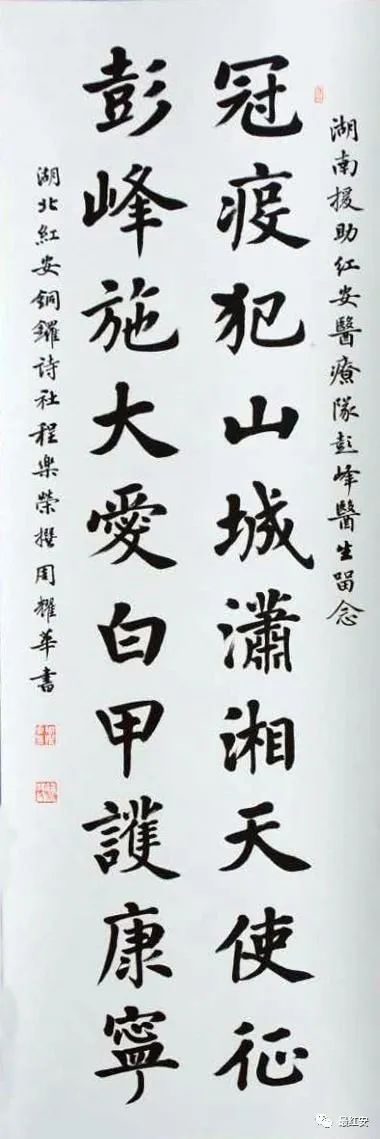 湖南援助红安醫療隊彭峰醫生留念
冠疫犯山城瀟湘天使征
彭峰施大愛白甲護康寧
湖北紅安銅鑼詩社程樂榮撰周耀華書
最红安